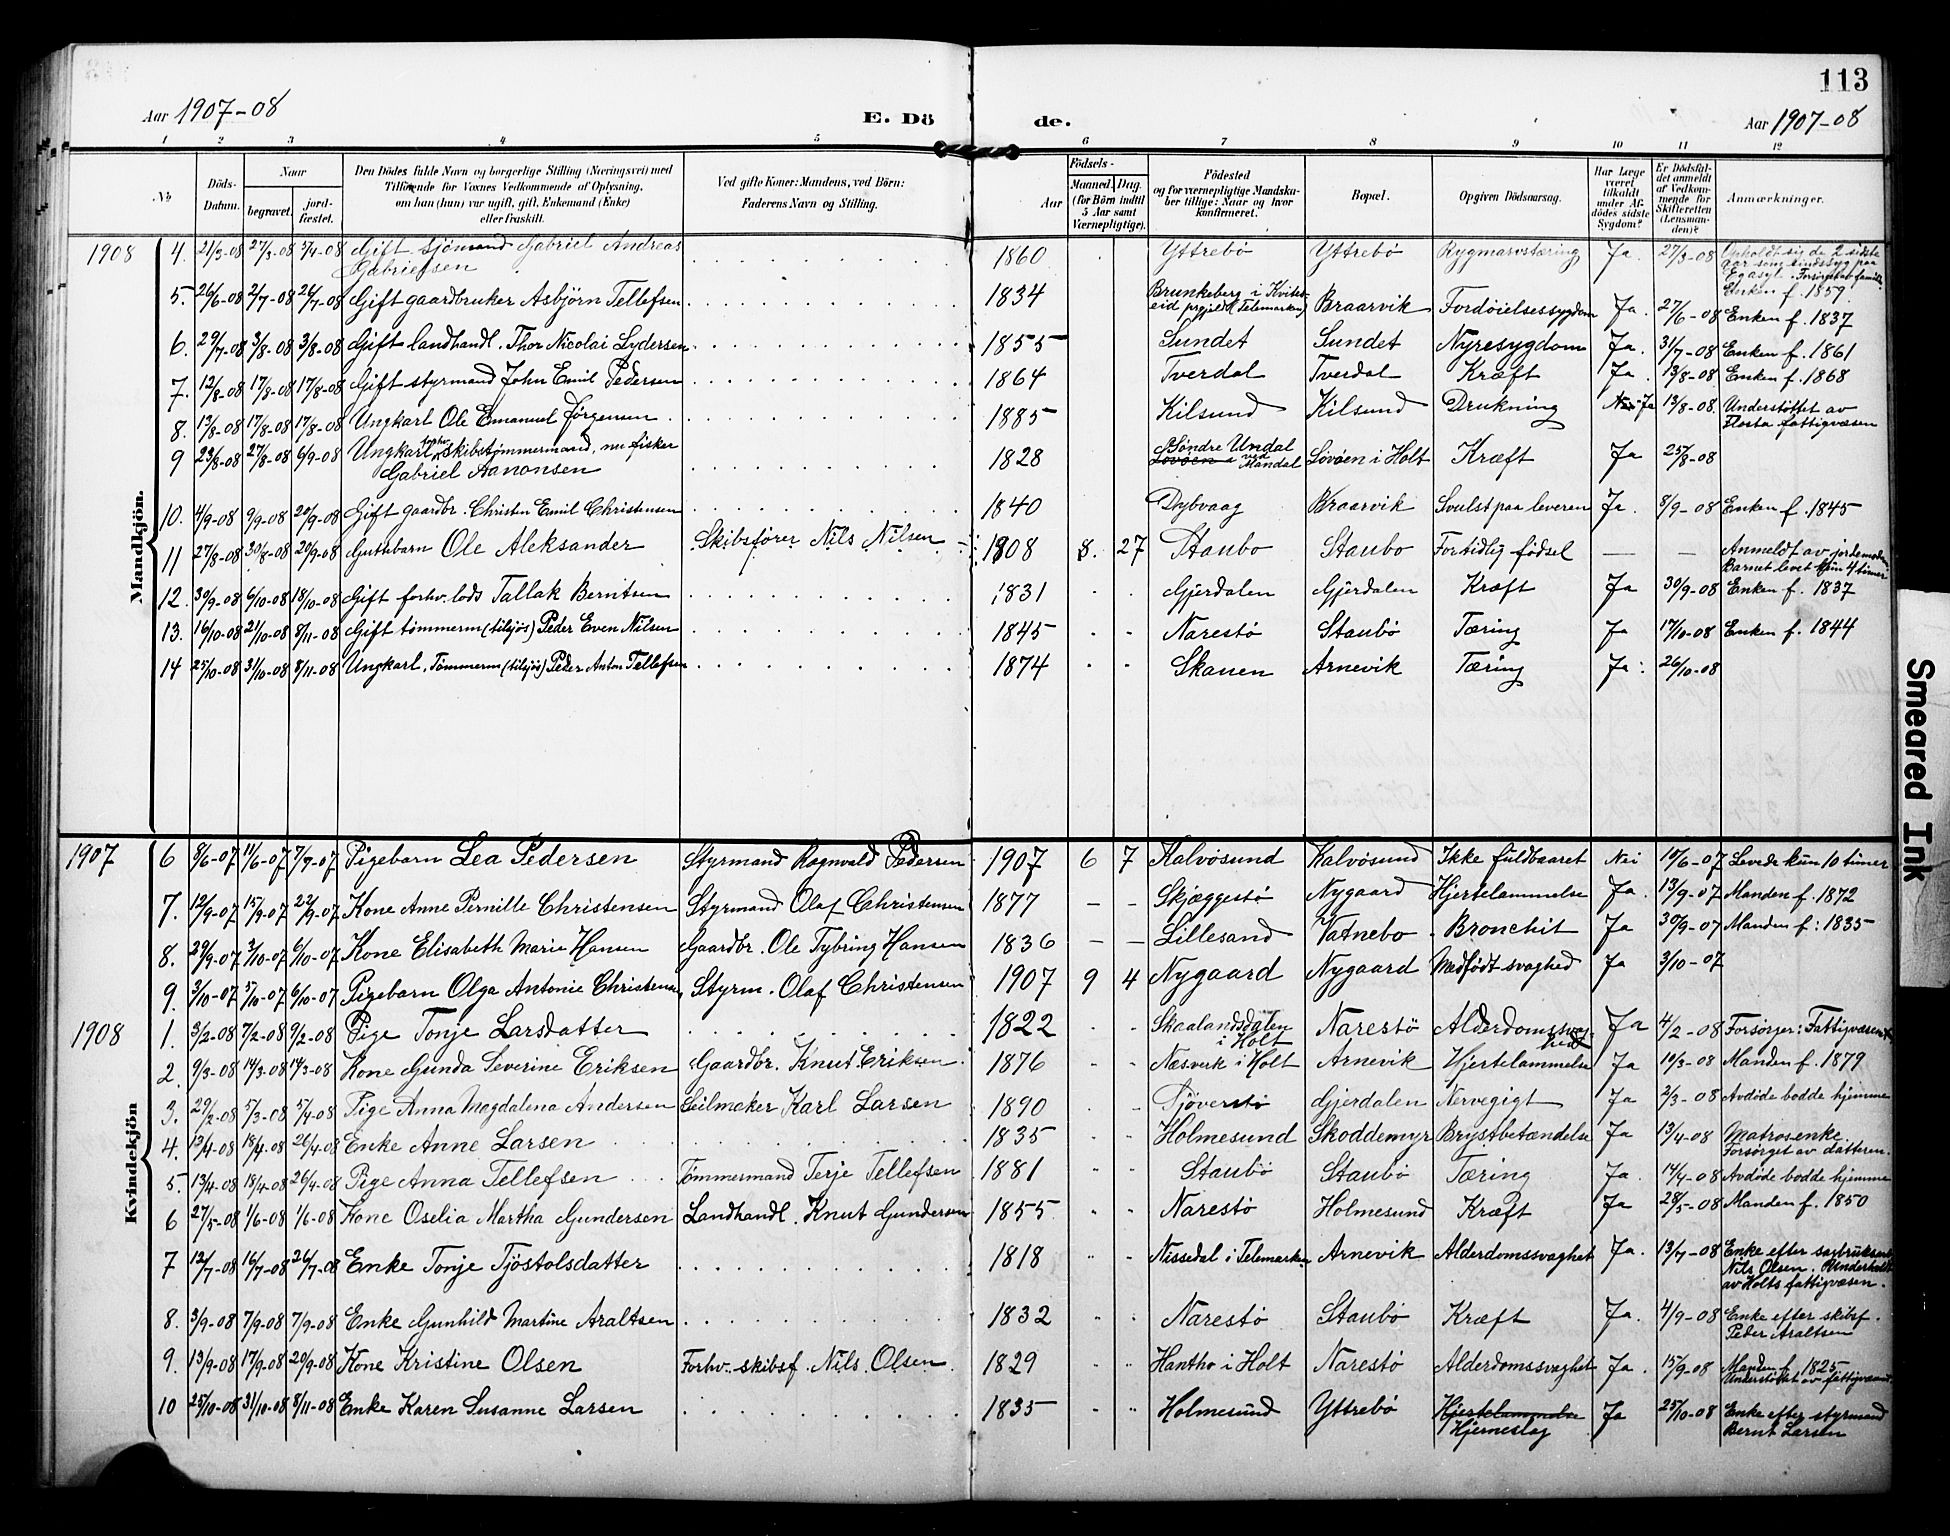 113
Aar 1907-08 E. Dö de. Aar 1907-08
1 2 3 4 5 6 7 8 9 10 11 12
No Döds-Datum. Naar begravet. jordfæstet. Den Dödes fulde Navn og borgerlige Stilling (Næringsvei) med Tilföiende for Voxnes Vedkommende af Oplysning, om han (hun) var ugift, gift, Enkemand (Enke) eller fraskilt. Ved gifte Koner: Mandens, ved Börn: Faderens Navn og Stilling. Födsels- Aar Maaned. Dag. (for Börn indtil 5 Aar samt Værnepligtige). Födested og for værnepligtige Mandskaber tillige: Naar og hvor konfirmeret. Bopæl. Opgiven Dödsaarsag. Har Læge været tilkaldt under Afdödes sidste Sygdom? Er Dödsfaldet anmeldt af Vedkommende for Skifteretten (Lensmanden)? Anmærkninger.
Mandkjön.
1908 4. 21/3-08 27/3-08 5/4-08 Gift sjömand Gabriel Andreas Gabrielsen 1860 Yttrebö Yttrebö Rygmarvstæring Ja. 27/3-08 Opholdt sig de 2 sidste aar som sindssyg paa Eg asyl. Forsörget av familie. Enken f. 1859.
5. 26/6-08 2/7-08 26/7-08 Gift gaardbruker Asbjörn Tellefsen 1834 Brunkeberg i Kviteseid prgjeld (Telemarken) Braarvik Fordöielsessygdom Ja. 27/6-08 Enken f. 1837
6. 29/7-08 3/8-08 3/8-08 Gift landhandl. Thor Nicolai Lydersen 1855 Sundet Sundet Nyresygdom Ja. 31/7-08 Enken f. 1861
7. 12/8-08 17/8-08 17/8-08 Gift styrmand John Emil Pedersen 1864 Tverdal Tverdal Kræft Ja. 13/8-08 Enken f. 1868
8. 13/8-08 17/8-08 17/8-08 Ungkarl Ole Emanuel Jörgensen 1885 Kilsund Kilsund Drukning Nei Ja 13/8-08. Understöttet av Flosta fattigvæsen
9 23/8-08 27/8-08 6/9-08 Ungkarl forhv. skibstömmermand, nu fisker Gabriel Aanonsen 1828 Lövöen Söndre Undal ved Mandal Lövöen i Holt Kræft Ja 25/8-08
10. 4/9-08 9/9-08 20/9-08 Gift gaardbr. Christen Emil Christensen 1840 Dybvaag Braarvik Svulst paa leveren Ja. 8/9-08 Enken f. 1845
11 27/8-08 30/8-08 20/9-08 Guttebarn Ole Aleksander Skibsförer Nils Nilsen 1908 8. 27 Staubo Staubo Fortidlig födsel — — Anmeldt av jordemoderen Barnet levet kun 4 timer
12. 30/9-08 6/10-08 18/10-08 Gift forhv. lods Tallak Berntsen 1831 Gjerdalen Gjerdalen Kræft Ja 30/9-08 Enken f. 1837
13. 16/10-08 21/10-08 8/11-08 Gift tömmerm (tilsjös) Peder Even Nilsen 1845 Narestö Staubö Tæring Ja 17/10-08 Enken f. 1844
14 25/10-08 31/10-08 8/11-08 Ungkarl, Tömmerm (tilsjös) Peder Anton Tellefsen 1874 Skauen Arnevik Tæring Ja. 26/10-08
Kvindekjön
1907 6 8/6-07 11/6-07 7/7-07 Pigebarn Lea Pedersen Styrmand Ragnvald Pedersen 1907 6 7 Kalvösund Kalvösund Ikke fuldbaaret Nei 10/6-07 Levede kun 10 timer
7. 12/9-07 15/9-07 22/9-07 Kone Anne Pernille Christensen Styrmand Olaf Christensen 1877 — — Skjæggestö Nygaard Hjertelammelse Ja. 13/9-07 Manden f. 1872
8. 29/9-07 3/10-07 6/10-07 Kone Elisabeth Marie Hansen Gaardbr. Ole Tybring Hansen 1836 — — Lillesand Vatnebo Bronchit Ja 30/9-07 Manden f: 1835
9. 3/10-07 5/10-07 6/10-07 Pigebarn Olga Antonie Christensen Styrm. Olaf Christensen 1907 9 4 Nygaard Nygaard Medfödt svaghed Ja 3/10-07
1908 1. 3/2-08 7/2-08 9/2-08 Pige Tonje Larsdatter 1822 Skaalandsdalen i Holt Narestö Alderdomssvaghed Ja 4/2-08 Forsörger: Fattigvæsenet
2. 9/3-08 14/3-08 14/3-08 Kone Gunda Severine Eriksen Gaardbr. Knut Eriksen 1876 Næsverk i Holt Arnevik Hjertelammelse Ja 10/3-08 Manden f. 1879
3. 29/2-08 5/3-08 5/4-08 Pige Anna Magdalena Andersen Seilmaker Karl Larsen 1890 Tjöverstö Gjerdalen Nervegigt Ja 2/3-08 Avdöde bodde hjemme
4. 12/4-08 18/4-08 26/4-08 Enke Anne Larsen 1835 Holmesund Skoddemyr Brystbetændelse Ja 13/4-08 Matrosenke. Forsörget av datteren.
5. 13/4-08 18/4-08 26/4-08 Pige Anna Tellefsen Tömmermand Terje Tellefsen 1881 Staubö Staubö Tæring Ja. 14/4-08 Avdöde bodde hjemme
6 27/5-08 1/6-08 1/6-08 Kone Oselia Martha Gundersen Landhandl. Knut Gundersen 1855 Narestö Holmesund Kræft Ja 28/5-08 Manden f. 1850
7 12/7-08 16/7-08 26/7-08 Enke Tonje Tjöstolsdatter 1818 Nissedal i Telemarken Arnevik Alderdomssvaghet Ja. 13/7-08 Enke efter Nils Olsen. Underholdt av Holts fattigvæsen.
8. 3/9-08 7/9-08 7/9-08 Enke Gunhild Martine Araltsen 1832 Narestö Staubö Kræft Ja. 4/9-08 Enke efter skibsf. Peder Araltsen
9. 13/9-08 17/9-08 20/9-08 Kone Kristine Olsen Forhv. skibsf. Nils Olsen 1829 Hantho i Holt Narestö Alderdomssvaghet Ja. 15/9-08 Manden f. 1825 Understöttet av fattigvæsenet
10 25/10-08 31/10-08 8/11-08 Enke Karen Susanne Larsen 1835 Holmesund Yttrebö Hjertelammelse Hjerneslag Ja 25/10-08 Enke efter styrmand Bernt Larsen
Smeared Ink